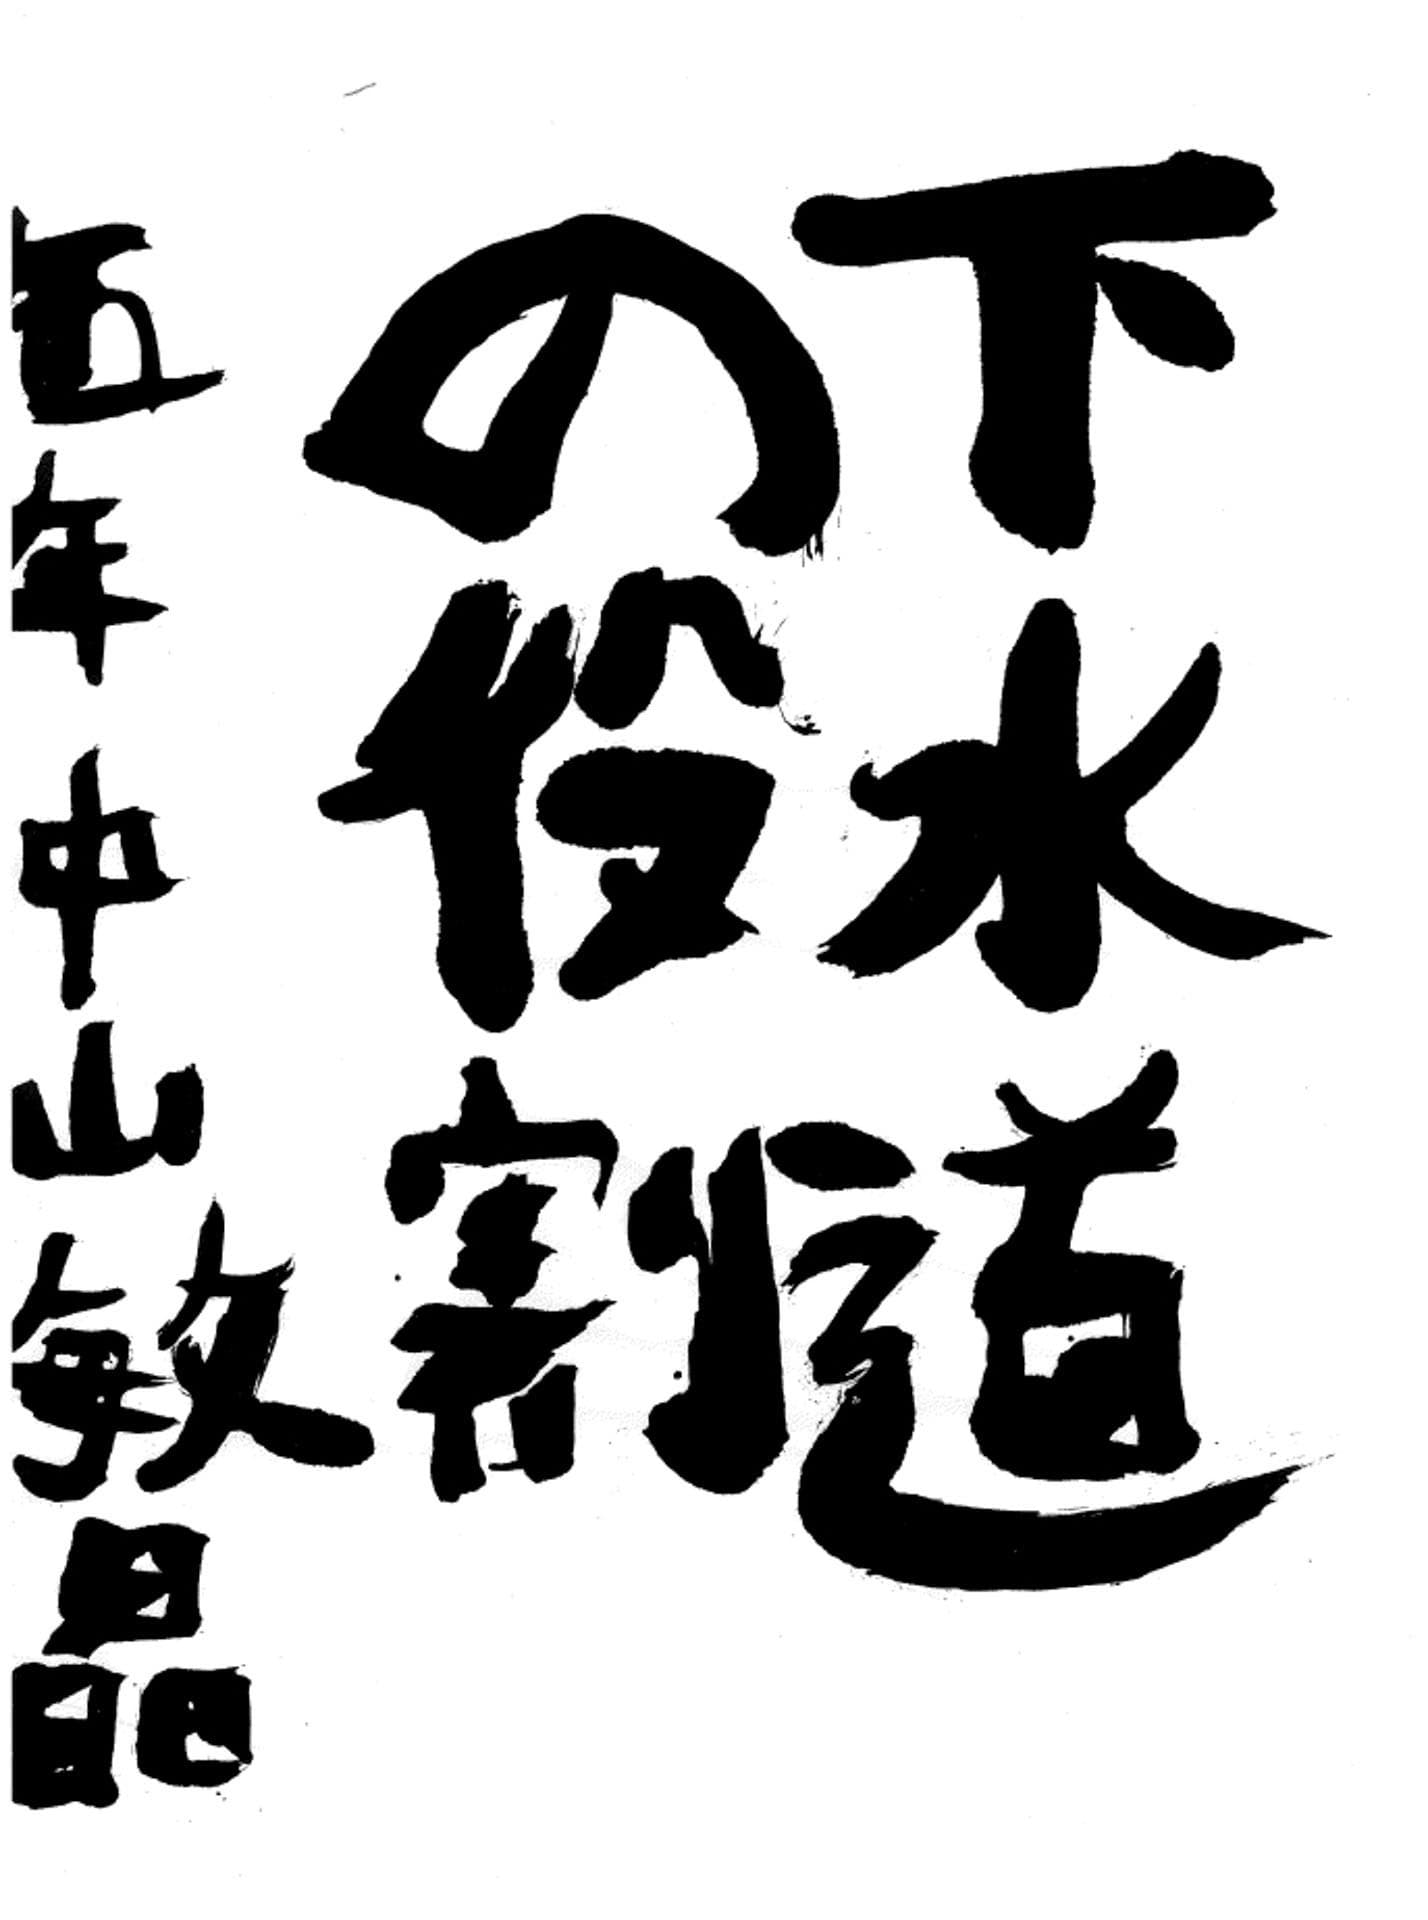 下水道
の役割
五年中山敏晶